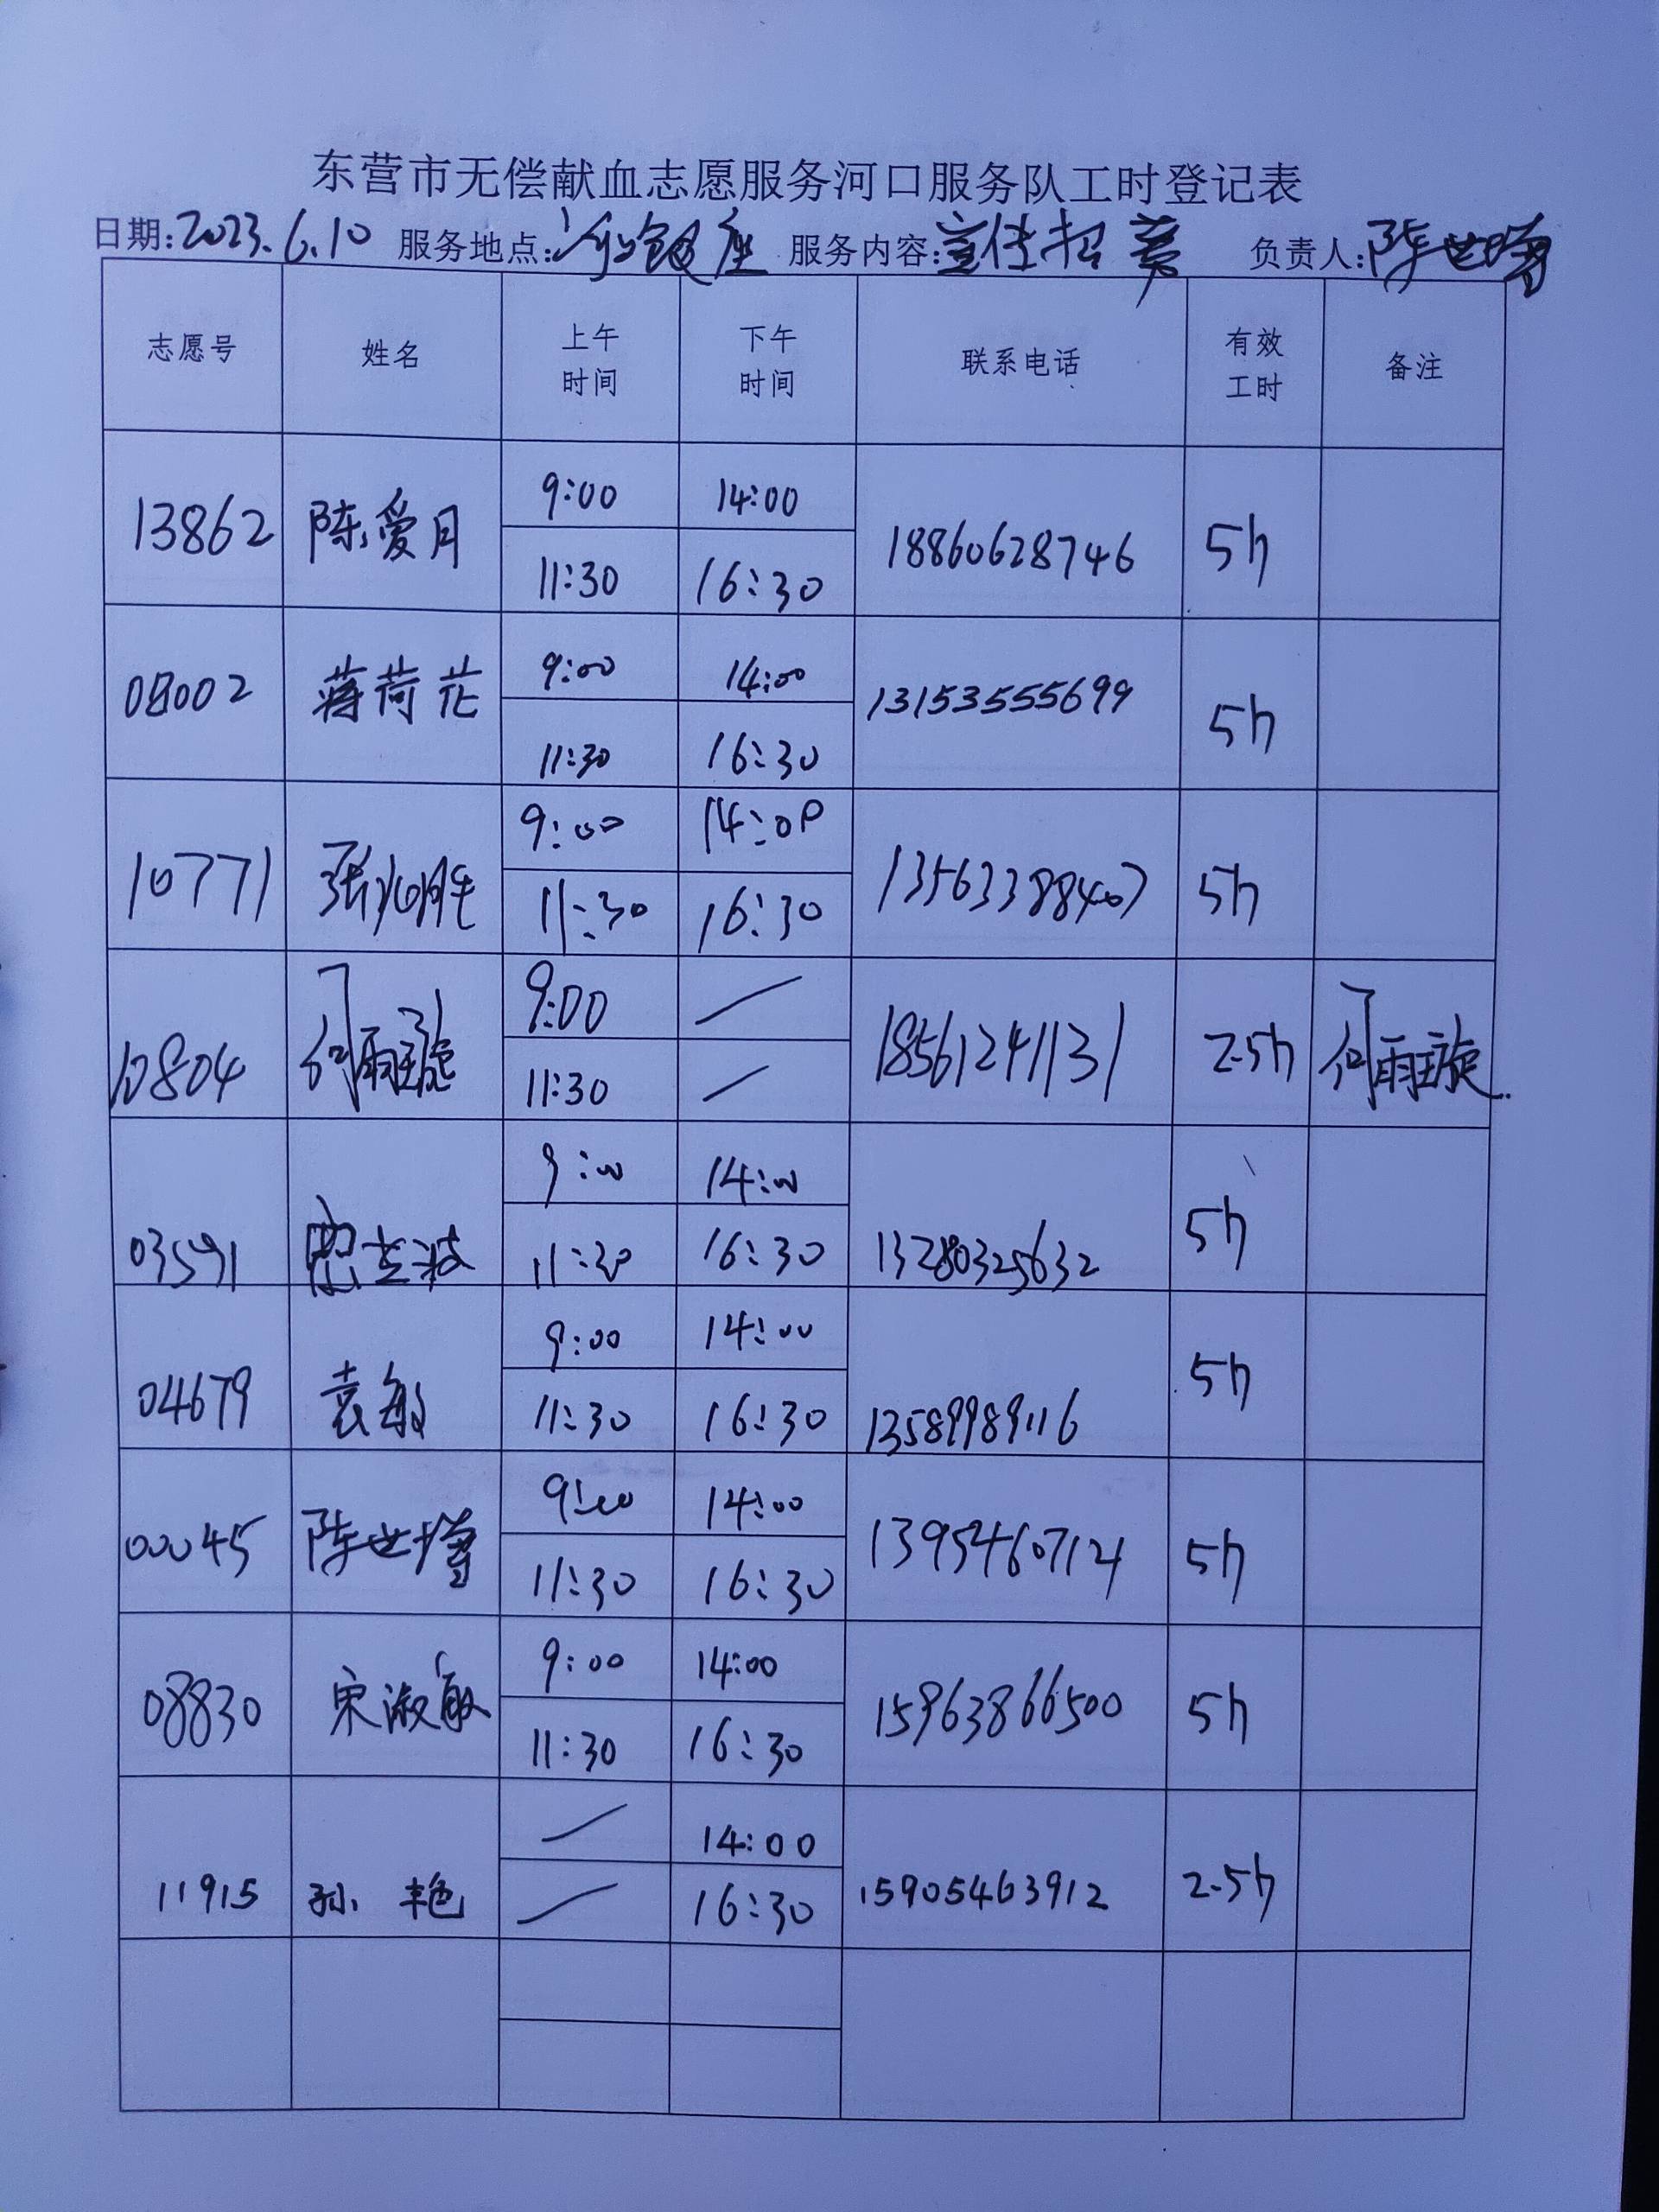 东营市无偿献血志愿服务河口服务队工时登记表
日期:2023.6.10 服务地点:河口银座 服务内容:宣传招募 负责人:陈世增
志愿号 姓名 上午时间 下午时间 联系电话 有效工时 备注
13862 陈爱月 9:00 14:00 18860628746 5h
11:30 16:30
08002 蒋荷花 9:00 14:00 13153555699 5h
11:30 16:30
10771 张兆胜 9:00 14:00 13563388407 5h
11:30 16:30
10804 何雨璇 9:00 / 18561241131 2.5h 何雨璇
11:30 /
03591 9:00 14:00 13280325632 5h
11:30 16:30
04679 袁敏 9:00 14:00 13589989116 5h
11:30 16:30
00045 陈世增 9:00 14:00 13954607124 5h
11:30 16:30
08830 宋淑敏 9:00 14:00 15963866500 5h
11:30 16:30
11915 孙艳 / 14:00 15905463912 2.5h
/ 16:30